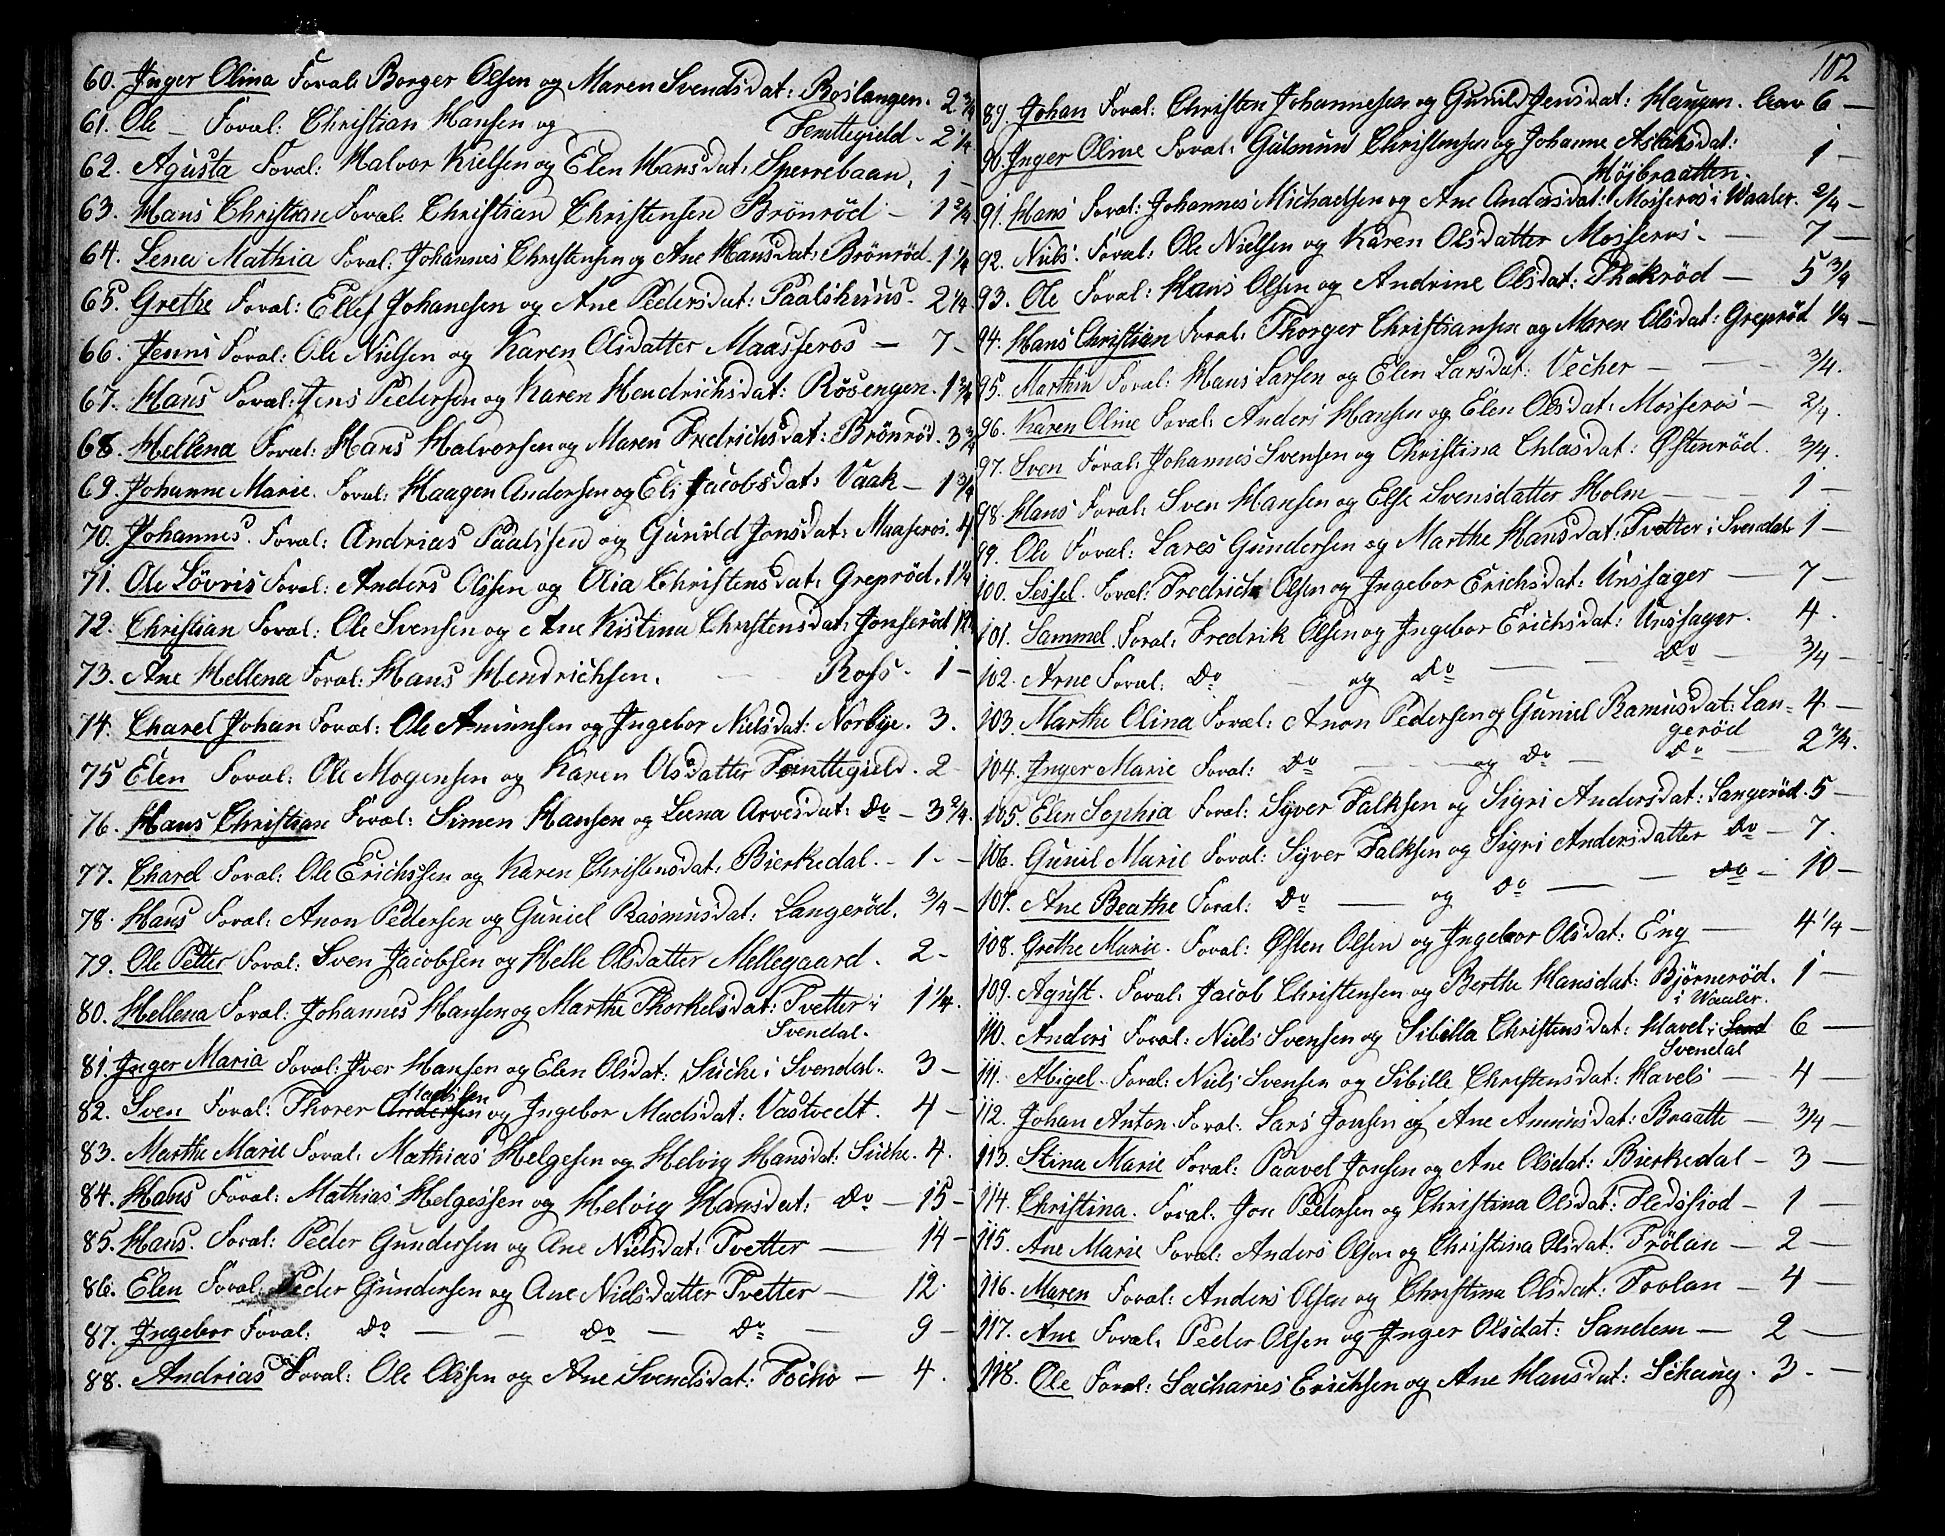 60. Inger Olina Foræl: Borger Olsen og Maren Svendsdat: Roslangen. 2 3/4
61. Ole — Foræl: Christian Hansen og Temttegield - 2 1/4
62. Agusta Foræl: Halvor Kielsen og Elen Hansdat: Sperrebaan. 1 —
63. Hans Christian Foræl: Christian Christensen Brönröd — 1 2/4
64. Lena Mathia Foræl: Johannes Christensen og Ane Hansdat: Brönröd. 1 1/4
65. Grethe Foræl: Ellef Johanesen og Ane Pedersdat: Paalshuus. 2 1/4
66. Jenns Foræl: Ole Nielsen og Karen Olsdatter Maasseros — 7 -
67. Hans Foræl: Jens Pedersen og Karen Hendrichsdat: Rösengen. 1 3/4
68. Hellena Foræl: Hans Halvorsen og Maren Fredrichsdat: Brönröd. 3 3/4
69. Johanne Marie. Foræl: Haagen Andersen og Eli Jacobsdat: Vaak — 1 3/4
70. Johannes. Foræl: Andrias Paalssen og Gunild Jonsdat: Maaseros. 4
71. Ole Lövris Foræl: Anders Olssen og Olia Christensdat: Grepröd. 1 1/4
72. Christian Foræl: Ole Svensen og Ane Kistina Christensdat: Jonseröd 12
73. Ane Hellena Foræl: Hans Hendrichsen. — Rofs. 1 —
74. Charel Johan Foræl: Ole Amunsen og Ingebor Nielsdat: Norbye. 3.
75 Elen Foræl: Ole Mogensen og Karen Olsdatter Temttegield. 2
76. Hans Christian Foræl: Simen Hansen og Leena Arvesdat: Do — 3 2/4.
77. Charel Foræl: Ole Erichssen og Karen Christensdat: Bierkedal. - 1 - -
78. Hans Foræl: Anon Pedersen og Guniel Rasmusdat: Langeröd. 3/4 —
79. Ole Petter Foræl: Sven Jacobsen og Helle Olsdatter Mellegaard. 2 -
80. Hellena Foræl: Johannes Hansen og Marthe Thorkelsdat: Tvetter i 1 1/4.
Svendal.
81. Inger Maria Foræl: Iver Hansen og Elen Olsdat: Suche i Svendal. 3 —
Madssen
82. Sven Foræl: Thorer Andersen og Ingebor Madsdat: Vastvedt. 4 —
83. Marthe Marie Foræl: Mathias Helgesen og Helvig Hansdat: Suche. 4.
84. Hans Foræl: Mathias Helgessen og Helvig Hansdat: Do — 15 -
85. Hans. Foræl: Peder Gundersen og Ane Nielsdat: Tvetter — 14 -
86. Elen Foræl: Peder Gundersen og Ane Nielsdatter Tvetter — 12.
87. Ingebor Foræl: Do — — Do — Do — 9 —
88. Andrias Foræl: Ole Olssen og Ane Svendsdat: Focho — 4.
102
89. Johan Foræl: Christen Johannesen og Gunild Jensdat: Haugen. 6 —
90. Inger Oline Foræl: Gulmund Christensen og Johanne Aslaksdat: 1 —
Höjbraatten.
91. Hans Foræl: Johannes Michaelsen og Ane Andersdat: Mosseros i Waaler. 2/4 —
92. Niels. Foræl: Ole Nielsen og Karen Olsdatter Mosseros. — 7 —
93. Ole Foræl: Hans Olsen og Andrine Olsdat: Thokröd — 5 3/4
94. Hans Christian Foræl: Thorger Christiansen og Maren Olsdat: Grepröd 1/4 —
95. Marthin Foræl: Hans Larsen og Elen Larsdat: Vecher — — 3/4.
96. Karen Oline Foræl: Anders Hansen og Elen Olsdat: Mosseros — 2/4.
97. Sven Foræl: Johannes Svensen og Christina Chlasdat: Østenröd. 3/4.
98. Hans Foræl: Sven Hansen og Else Svensdatter Holm — — 1 —
99. Ole Foræl: Lares Gundersen og Marthe Hansdat: Tvetter i Svendal 1 —
100. Sissel. Foræl: Fredrich Olsen og Ingebor Erichsdat: Unssager — 7 —
101. Sammel. Foræl: Fredrik Olsen og Ingebor Erichsdat: Unssager. 4.
102. Arne Foræl: Do — og Do — — Do — 3/4 —
103. Marthe Olina Foræl: Anon Pedersen og Guniel Ramusdat: Lan= 4 —
geröd
104. Inger Marie Foræl: Do — — og Do — Do — 2 3/4.
105. Elen Sophia Foræl: Syver Falksen og Sigri Andersdat: Langeröd. 5 —
106. Guniil Marie Foræl: Syver Falksen og Sigri Andersdatter Do — 7.
107. Ane Beathe Foræl: Do — og Do — — Do — 10 —
108. Grethe Marie. Foræl: Østen Olsen og Ingebor Olsdat: Eng — 4 1/4 —
109. Agust. Foræl: Jacob Christensen og Berthe Hansdat: Bjørneröd. 1 —
i Waaler.
110. Anders Foræl: Niels Svensen og Sibilla Christensdat: Havel i 6 —
Svendal
111. Abigel. Foræl: Niels Svensen og Sibille Christensdat: Havels — 4 —
112. Johan Anton. Foræl: Lars Jonsen og Ane Amunsdat: Braatte — 3/4 —
113. Stina Marie Foræl: Paavel Jonsen og Ane Olsdat: Bierkedal — 3 —
114. Christina. Foræl: Jon Pedersen og Christina Olsdat: — 1 —
115. Ane Marie Foræl: Anders Olsen og Christina Olsdat: Frölan — 2 —
116. Maren Foræl: Anders Olsen og Christina Olsdat: Foolan — 4 —
117. Ane Foræl: Peder Olsen og Inger Olsdat: Sandem — 2 —
118. Ole Foræl: Sacharies Erichsen og Ane Hansdat: Sihaug. 3. —